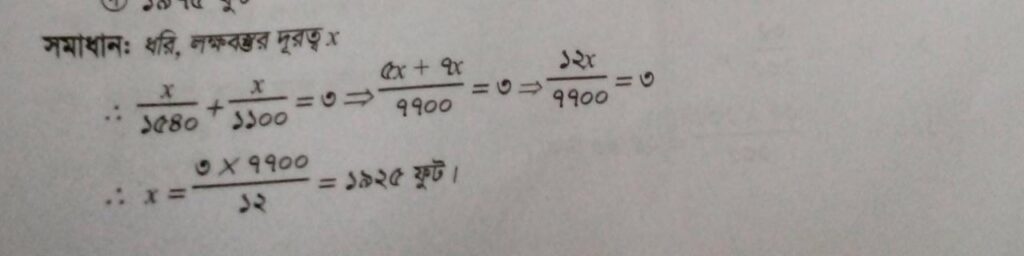 সমাধান: ধরি, লক্ষবস্তুর দূরত্ব x
∴ x/১৫৪০ + x/১১০০ = ৩ ⇒ ৫x + ৭x/৭৭০০ = ৩ ⇒ ১২x/৭৭০০ = ৩
∴ x = ৩ × ৭৭০০/১২ = ১৯২৫ ফুট।